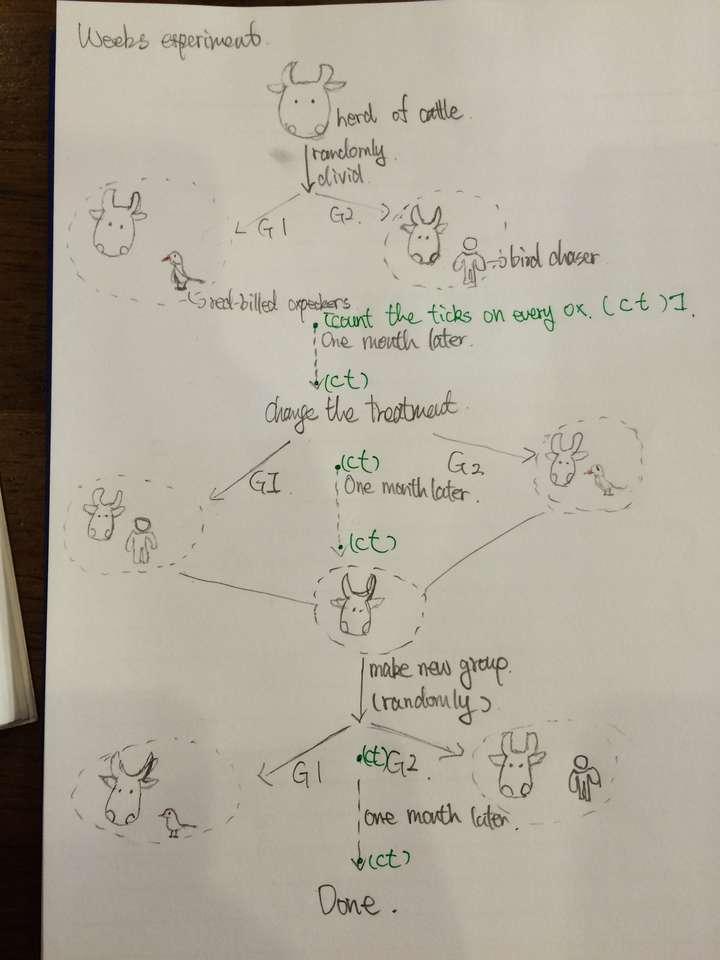 Weebs experiment.
herd of cattle.
randomly.
divid.
G1
G2.
bird chaser
red-billed oxpeckers
[count the ticks on every ox. (ct)].
One month later.
(ct)
change the treatment.
G1.
(ct)
G2
One month later.
(ct)
make new group.
(randomly)
G1
(ct)
G2.
one month later.
(ct)
Done.